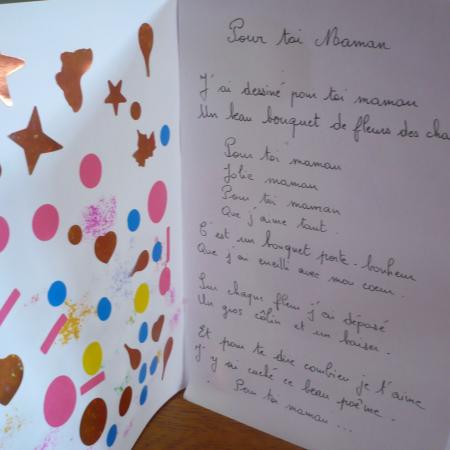 Pour toi Maman
J'ai dessiné pour toi maman
Un beau bouquet de fleurs des cha
Pour toi maman
Jolie maman
Pour toi maman
Que j'aime tant.
C'est un bouquet porte-bonheur
Que j'ai cueilli avec mon coeur.
Sur chaque fleur j'ai déposé
Un gros câlin et un baiser.
Et pour te dire combien je t'aime
j'y ai caché ce beau poème.
Pour toi maman...